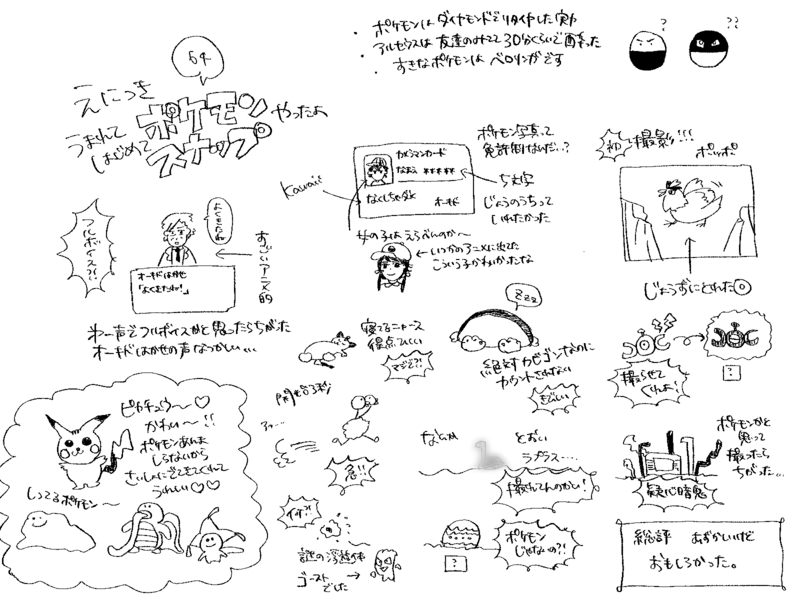 ・ポケモンはダイヤモンドをリタイヤした実力
・アルセウスは友達のみてて30分くらいで酔った
・すきなポケモンはベロリンガです
?
??
64
えにっき
うまれて
はじめて
ポケモン
スナップ
やったよ
ポケモン写真って
免許制なんだ..?
カメラマンカード
なまえ ****
なくしちゃダメ
オーキド
5文字
じょうのうちって
いれたかった
Kawaii
女の子はえらべんのか〜
←いつかのアニメに出てた
こういう子がかわいかったな
初撮影!!!
ポッポ
じょうずにとれた◎
フルボイス?!
よくきたね
オーキドはかせ
「よくきたね!」
すごいアニメ的
わー声でフルボイスかと思ったらちがった
オーキドはかせの声なつかしい...
寝てるニャース
得点ひくい
マジで?!
Zzz
絶対カビゴンなのに
カウントされない
きびしい
撮らせて
くれよ!
?
ピカチュウ〜♡
かわい〜!!
ポケモンあんま
しらないから
さいしょにでてきてくれて
うれしい♡♡
しってるポケモン〜
開始3秒
急!!
なんか
とおい
ラプラス....
撮れてんのかい!
ポケモンかと
思って
撮ったら
ちがった...
疑心暗鬼
イナ?!
謎の浮遊体
ゴースト
でした
ポケモン
じゃないの?!
?
総評 むずかしいけど
おもしろかった。